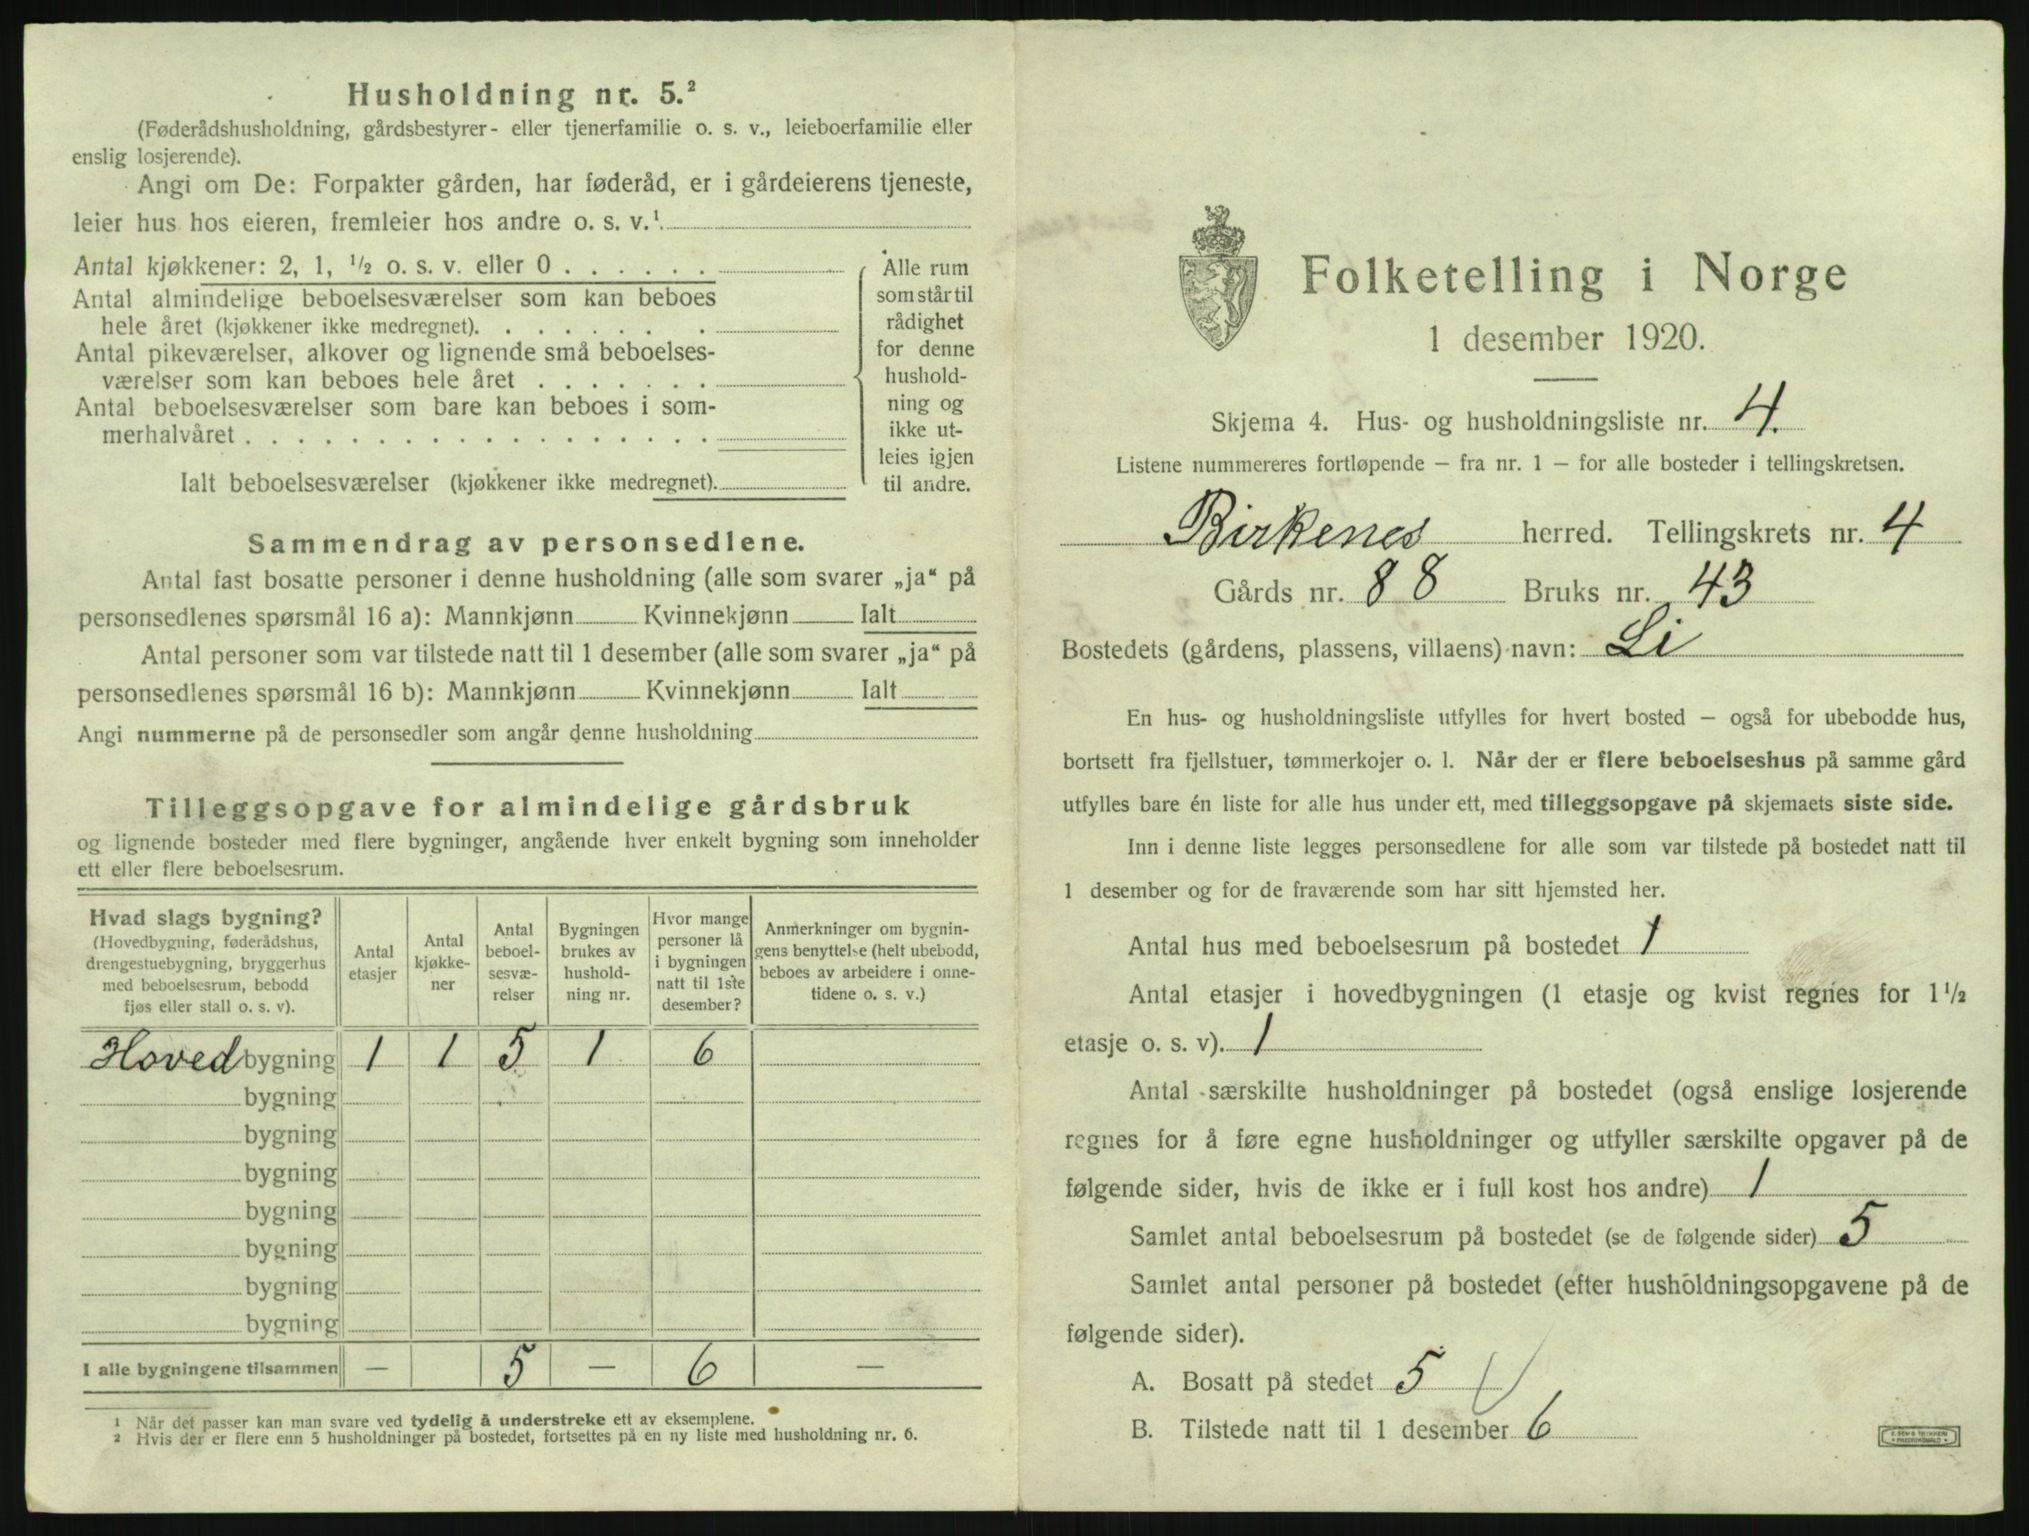 Husholdning nr. 5.²
(Føderådshusholdning, gårdsbestyrer- eller tjenerfamilie o. s. v., leieboerfamilie eller
enslig losjerende).
Angi om De: Forpakter gården, har føderåd, er i gårdeierens tjeneste,
leier hus hos eieren, fremleier hos andre o. s. v.¹
Antal kjøkkener: 2, 1, ½ o. s. v. eller 0 . . . . . .
Antal almindelige beboelsesværelser som kan beboes
hele året (kjøkkener ikke medregnet). . . . . . . . .
Antal pikeværelser, alkover og lignende små beboelses-
værelser som kan beboes hele året . . . . . . .
Antal beboelsesværelser som bare kan beboes i som-
merhalvåret . . . . . . . . . . . . . . . . . .
Ialt beboelsesværelser (kjøkkener ikke medregnet).
Alle rum
som står til
rådighet
for denne
hushold-
ning og
ikke ut-
leies igjen
til andre.
Sammendrag av personsedlene.
Antal fast bosatte personer i denne husholdning (alle som svarer „ja“ på
personsedlenes spørsmål 16 a): Mannkjønn Kvinnekjønn Ialt
Antal personer som var tilstede natt til 1 desember (alle som svarer „ja“ på
personsedlenes spørsmål 16 b): Mannkjønn Kvinnekjønn Ialt
Angi nummerne på de personsedler som angår denne husholdning
Tilleggsopgave for almindelige gårdsbruk
og lignende bosteder med flere bygninger, angående hver enkelt bygning som inneholder
ett eller flere beboelsesrum.
Hvad slags bygning?
(Hovedbygning, føderådshus,
drengestuebygning, bryggerhus
med beboelsesrum, bebodd
fjøs eller stall o. s. v).
Antal
etasjer
Antal
kjøkke-
ner
Antal
beboel-
sesvæ-
relser
Bygningen
brukes av
hushold-
ning nr.
Hvor mange
personer lå
i bygningen
natt til 1ste
desember?
Anmerkninger om bygnin-
gens benyttelse (helt ubebodd,
beboes av arbeidere i onne-
tidene o. s. v.)
Hoved bygning 1 1 5 1 6
bygning
bygning
bygning
bygning
bygning
bygning
bygning
I alle bygningene tilsammen — 5 — 6 —
¹ Når det passer kan man svare ved tydelig å understreke ett av eksemplene.
² Hvis der er flere enn 5 husholdninger på bostedet, fortsettes på en ny liste med husholdning nr. 6.
Folketelling i Norge
1 desember 1920.
Skjema 4. Hus- og husholdningsliste nr. 4.
Listene nummereres fortløpende — fra nr. 1 — for alle bosteder i tellingskretsen.
Birkenes herred. Tellingskrets nr. 4
Gårds nr. 88 Bruks nr. 43
Bostedets (gårdens, plassens, villaens) navn: Li
En hus- og husholdningsliste utfylles for hvert bosted — også for ubebodde hus,
bortsett fra fjellstuer, tømmerkojer o. l. Når der er flere beboelseshus på samme gård
utfylles bare én liste for alle hus under ett, med tilleggsopgave på skjemaets siste side.
Inn i denne liste legges personsedlene for alle som var tilstede på bostedet natt til
1 desember og for de fraværende som har sitt hjemsted her.
Antal hus med beboelsesrum på bostedet 1
Antal etasjer i hovedbygningen (1 etasje og kvist regnes for 1½
etasje o. s. v). 1
Antal særskilte husholdninger på bostedet (også enslige losjerende
regnes for å føre egne husholdninger og utfyller særskilte opgaver på de
følgende sider, hvis de ikke er i full kost hos andre) 1
Samlet antal beboelsesrum på bostedet (se de følgende sider) 5
Samlet antal personer på bostedet (efter husholdningsopgavene på de
følgende sider).
A. Bosatt på stedet 5
B. Tilstede natt til 1 desember 6